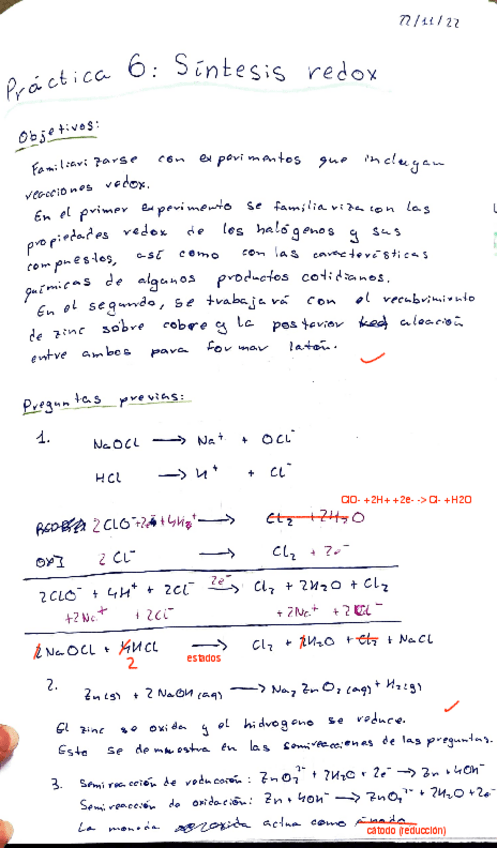 22/11/22
Práctica 6: Síntesis redox
Objetivos:
Familiarizarse con experimentos que incluyan
reacciones redox.
En el primer experimento se familiariza con las
propiedades redox de los halógenos y sus
compuestos, así como con las características
químicas de algunos productos cotidianos.
En el segundo, se trabajará con el recubrimiento
de zinc sobre cobre y la posterior aleación
entre ambos para formar latón.
Preguntas previas:
1.
NaOCl → Na⁺ + OCl⁻
HCl → H⁺ + Cl⁻
ClO- +2H+ +2e- -> Cl- +H2O
2ClO⁻ + 2e⁻ + 4H⁺ → Cl₂ + 2H₂O
OXI 2Cl⁻ → Cl₂ + 2e⁻
2ClO⁻ + 4H⁺ + 2Cl⁻ 2e⁻→ Cl₂ + 2H₂O + Cl₂
+2Na⁺ + 2Cl⁻ + 2Na⁺ + 2Cl⁻
2NaOCl + 4HCl → Cl₂ + 2H₂O + Cl₂ + NaCl
2 estados
2.
Zn(s) + 2NaOH(aq) → Na₂ZnO₂(aq) + H₂(g)
El zinc se oxida y el hidrógeno se reduce.
Esto se demuestra en las semireacciones de las preguntas.
3. Semireacción de reducción: ZnO₂²⁻ + 2H₂O + 2e⁻ → Zn + 4OH⁻
Semireacción de oxidación: Zn + 4OH⁻ → ZnO₂²⁻ + 2H₂O + 2e⁻
La moneda actua como ánodo
cátodo (reducción)